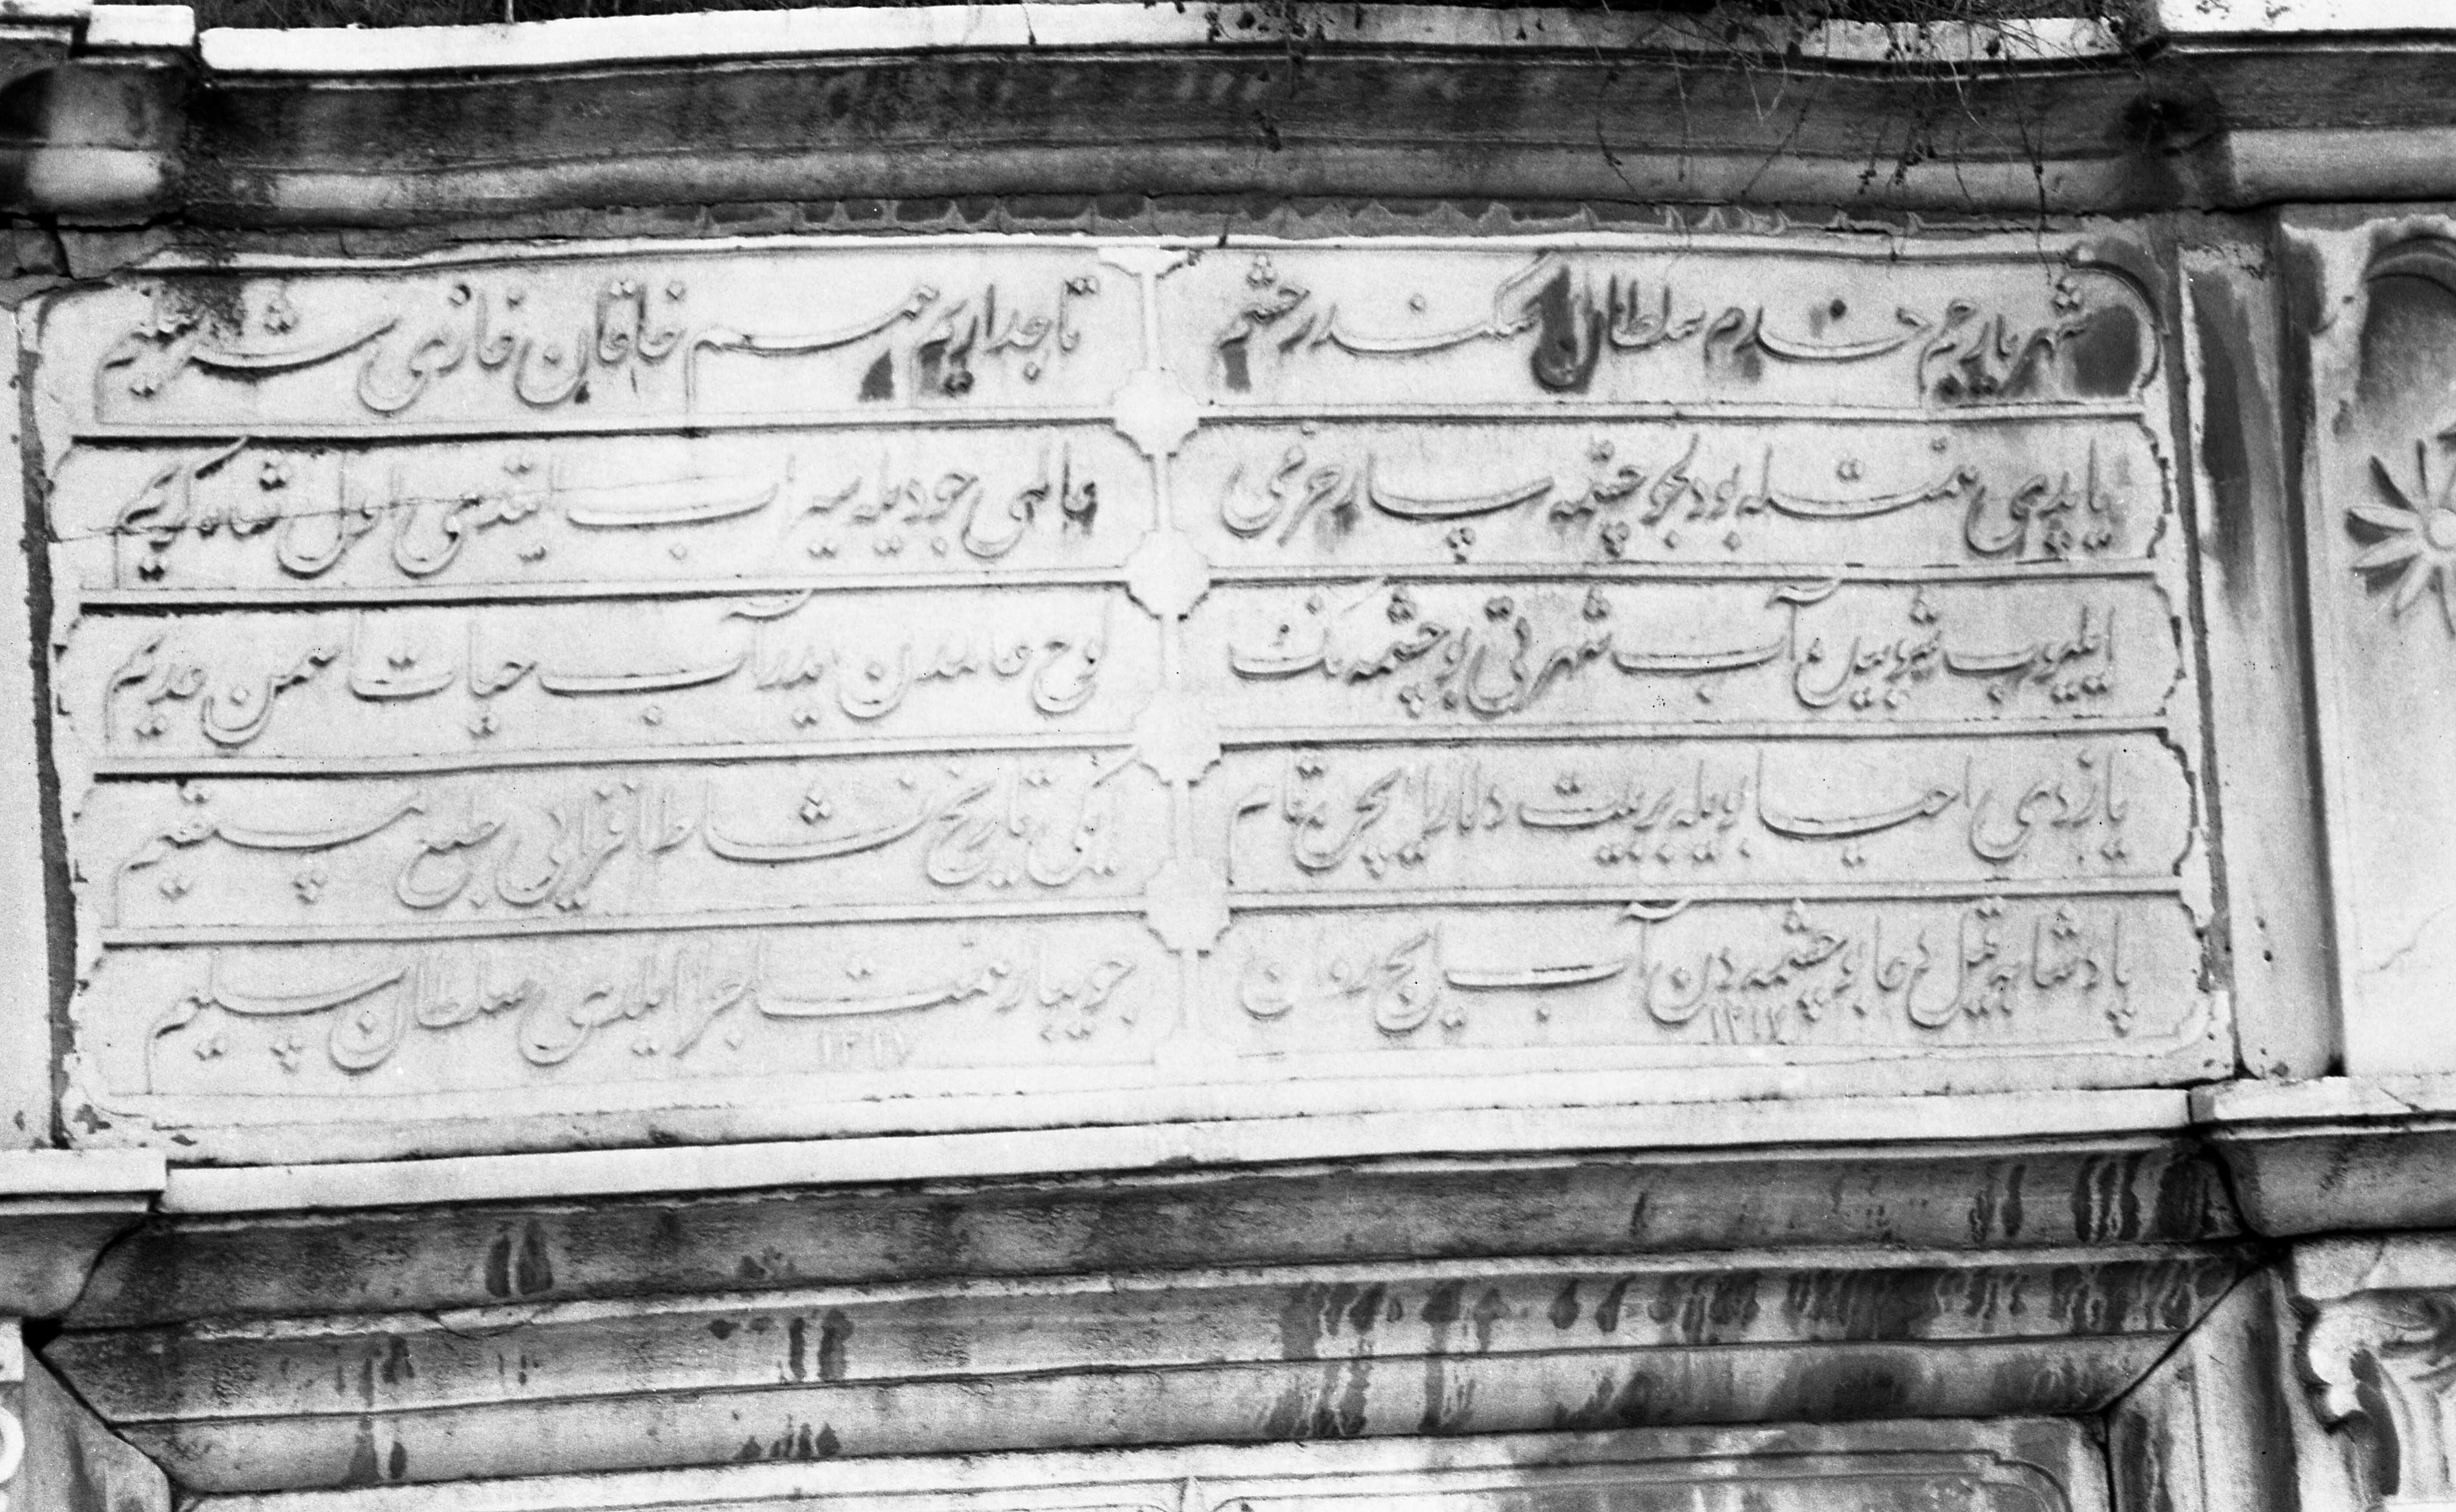 شهریار جم خدم سلطان سکندر حشم
تاجدار یم همم خاقان غازی شه سلیم
یاپدی همتله بو دلجو چشمه سار خرمی
عالمی جودیله سیراب ایتدی اول شاه کریم
ایلیوب آب شهرتی بو چشمه نك
لوح عالمدن ایدر آب حیات اسمن عدیم
یازدی احیا بویله بر بیت دلارا ایچره تام
ایکی تاریخ نشاط افزایی طبع مستقیم
پادشاهه قیل دعا بو چشمه دن آب ایچ روان ١٢١٧
جویبار همت اجرا ایلدی سلطان سلیم ١٢١٧